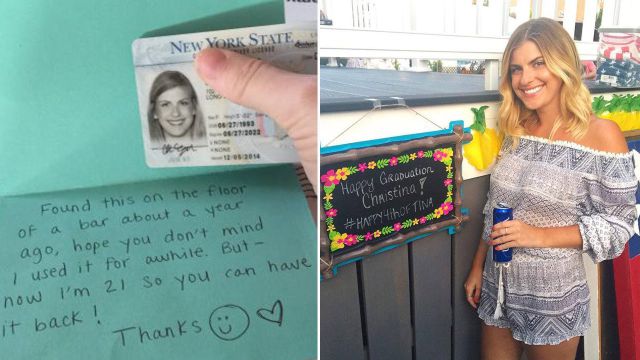 NEW YORK STATE
LONG
DOB 06/27/1993
06/27/2022
NONE
NONE
12/05/2014
Found this on the floor
of a bar about a year
ago, hope you don't mind
I used it for awhile. But-
now I'm 21 so you can have
it back!
Thanks
Happy Graduation
Christina!
#HAPPY4THOFTINA